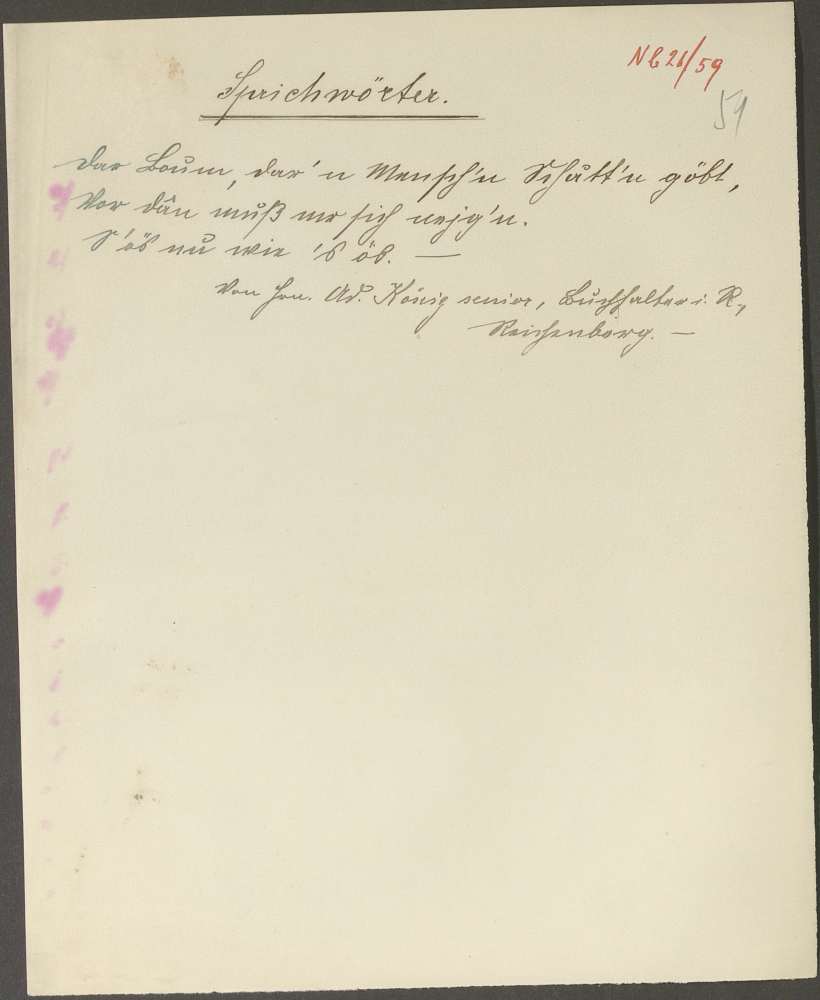 Nb 26/59
Sprichwörter.
51
Dar Boum, dar'n Mensch'n Schått'n göbt,
Vor dån muß mr sich nejg'n.
S'ös nu wie 's ös. —
Von Hrn. Ad. König senior, Buchhalter i. R.,
Reichenberg. —